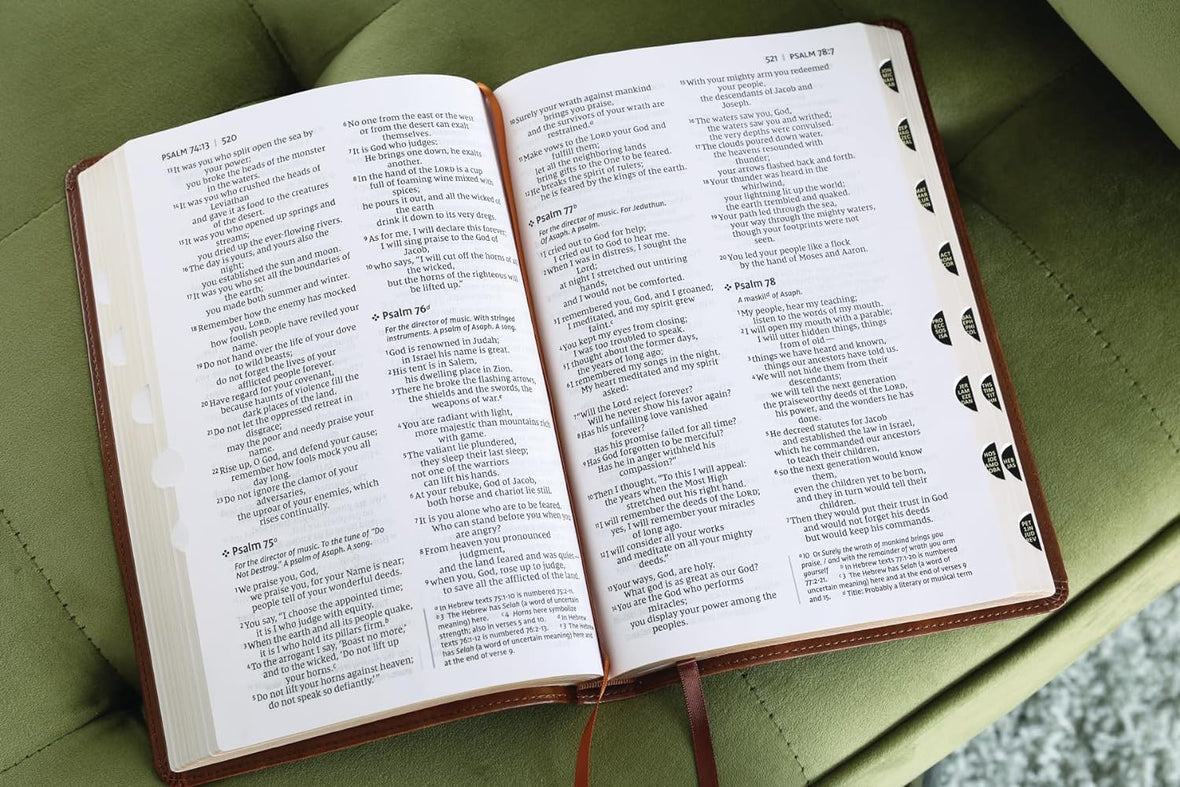 PSALM 74:13 | 520
13It was you who split open the sea by
your power;
you broke the heads of the monster
in the waters.
14It was you who crushed the heads of
Leviathan
and gave it as food to the creatures
of the desert.
15It was you who opened up springs and
streams;
you dried up the ever-flowing rivers.
16The day is yours, and yours also the
night;
you established the sun and moon.
17It was you who set all the boundaries of
the earth;
you made both summer and winter.
18Remember how the enemy has mocked
you, LORD,
how foolish people have reviled your
name.
19Do not hand over the life of your dove
to wild beasts;
do not forget the lives of your
afflicted people forever.
20Have regard for your covenant,
because haunts of violence fill the
dark places of the land.
21Do not let the oppressed retreat in
disgrace;
may the poor and needy praise your
name.
22Rise up, O God, and defend your cause;
remember how fools mock you all
day long.
23Do not ignore the clamor of your
adversaries,
the uproar of your enemies, which
rises continually.
Psalm 75a
For the director of music. To the tune of "Do
Not Destroy." A psalm of Asaph. A song.
1We praise you, God,
we praise you, for your Name is near;
people tell of your wonderful deeds.
2You say, "I choose the appointed time;
it is I who judge with equity.
3When the earth and all its people quake,
it is I who hold its pillars firm.b
4To the arrogant I say, 'Boast no more,'
and to the wicked, 'Do not lift up
your horns.c
5Do not lift your horns against heaven;
do not speak so defiantly.'"
6No one from the east or the west
or from the desert can exalt
themselves.
7It is God who judges:
He brings one down, he exalts
another.
8In the hand of the LORD is a cup
full of foaming wine mixed with
spices;
he pours it out, and all the wicked of
the earth
drink it down to its very dregs.
9As for me, I will declare this forever;
I will sing praise to the God of
Jacob,
10who says, "I will cut off the horns of
the wicked,
but the horns of the righteous will
be lifted up."
Psalm 76d
For the director of music. With stringed
instruments. A psalm of Asaph. A song.
1God is renowned in Judah;
in Israel his name is great.
2His tent is in Salem,
his dwelling place in Zion.
3There he broke the flashing arrows,
the shields and the swords, the
weapons of war.e
4You are radiant with light,
more majestic than mountains rich
with game.
5The valiant lie plundered,
they sleep their last sleep;
not one of the warriors
can lift his hands.
6At your rebuke, God of Jacob,
both horse and chariot lie still.
7It is you alone who are to be feared.
Who can stand before you when you
are angry?
8From heaven you pronounced
judgment,
and the land feared and was quiet—
9when you, God, rose up to judge,
to save all the afflicted of the land.
a In Hebrew texts 75:1-10 is numbered 75:2-11.
b 3 The Hebrew has Selah (a word of uncertain
meaning) here. c 4 Horns here symbolize
strength; also in verses 5 and 10. d In Hebrew
texts 76:1-12 is numbered 76:2-13. e 3 The Hebrew
has Selah (a word of uncertain meaning) here and
at the end of verse 9.
521 | PSALM 78:7
10Surely your wrath against mankind
brings you praise,
and the survivors of your wrath are
restrained.a
11Make vows to the LORD your God and
fulfill them;
let all the neighboring lands
bring gifts to the One to be feared.
12He breaks the spirit of rulers;
he is feared by the kings of the earth.
Psalm 77b
For the director of music. For Jeduthun.
Of Asaph. A psalm.
1I cried out to God for help;
I cried out to God to hear me.
2When I was in distress, I sought the
Lord;
at night I stretched out untiring
hands,
and I would not be comforted.
3I remembered you, God, and I groaned;
I meditated, and my spirit grew
faint.c
4You kept my eyes from closing;
I was too troubled to speak.
5I thought about the former days,
the years of long ago;
6I remembered my songs in the night.
My heart meditated and my spirit
asked:
7"Will the Lord reject forever?
Will he never show his favor again?
8Has his unfailing love vanished
forever?
Has his promise failed for all time?
9Has God forgotten to be merciful?
Has he in anger withheld his
compassion?"
10Then I thought, "To this I will appeal:
the years when the Most High
stretched out his right hand.
11I will remember the deeds of the LORD;
yes, I will remember your miracles
of long ago.
12I will consider all your works
and meditate on all your mighty
deeds."
13Your ways, God, are holy.
What god is as great as our God?
14You are the God who performs
miracles;
you display your power among the
peoples.
15With your mighty arm you redeemed
your people,
the descendants of Jacob and
Joseph.
16The waters saw you, God,
the waters saw you and writhed;
the very depths were convulsed.
17The clouds poured down water,
the heavens resounded with
thunder;
your arrows flashed back and forth.
18Your thunder was heard in the
whirlwind,
your lightning lit up the world;
the earth trembled and quaked.
19Your path led through the sea,
your way through the mighty waters,
though your footprints were not
seen.
20You led your people like a flock
by the hand of Moses and Aaron.
Psalm 78
A maskild of Asaph.
1My people, hear my teaching;
listen to the words of my mouth.
2I will open my mouth with a parable;
I will utter hidden things, things
from of old—
3things we have heard and known,
things our ancestors have told us.
4We will not hide them from their
descendants;
we will tell the next generation
the praiseworthy deeds of the LORD,
his power, and the wonders he has
done.
5He decreed statutes for Jacob
and established the law in Israel,
which he commanded our ancestors
to teach their children,
6so the next generation would know
them,
even the children yet to be born,
and they in turn would tell their
children.
7Then they would put their trust in God
and would not forget his deeds
but would keep his commands.
a 10 Or Surely the wrath of mankind brings you
praise, / and with the remainder of wrath you arm
yourself b In Hebrew texts 77:1-20 is numbered
77:2-21. c 3 The Hebrew has Selah (a word of
uncertain meaning) here and at the end of verses 9
and 15. d Title: Probably a literary or musical term